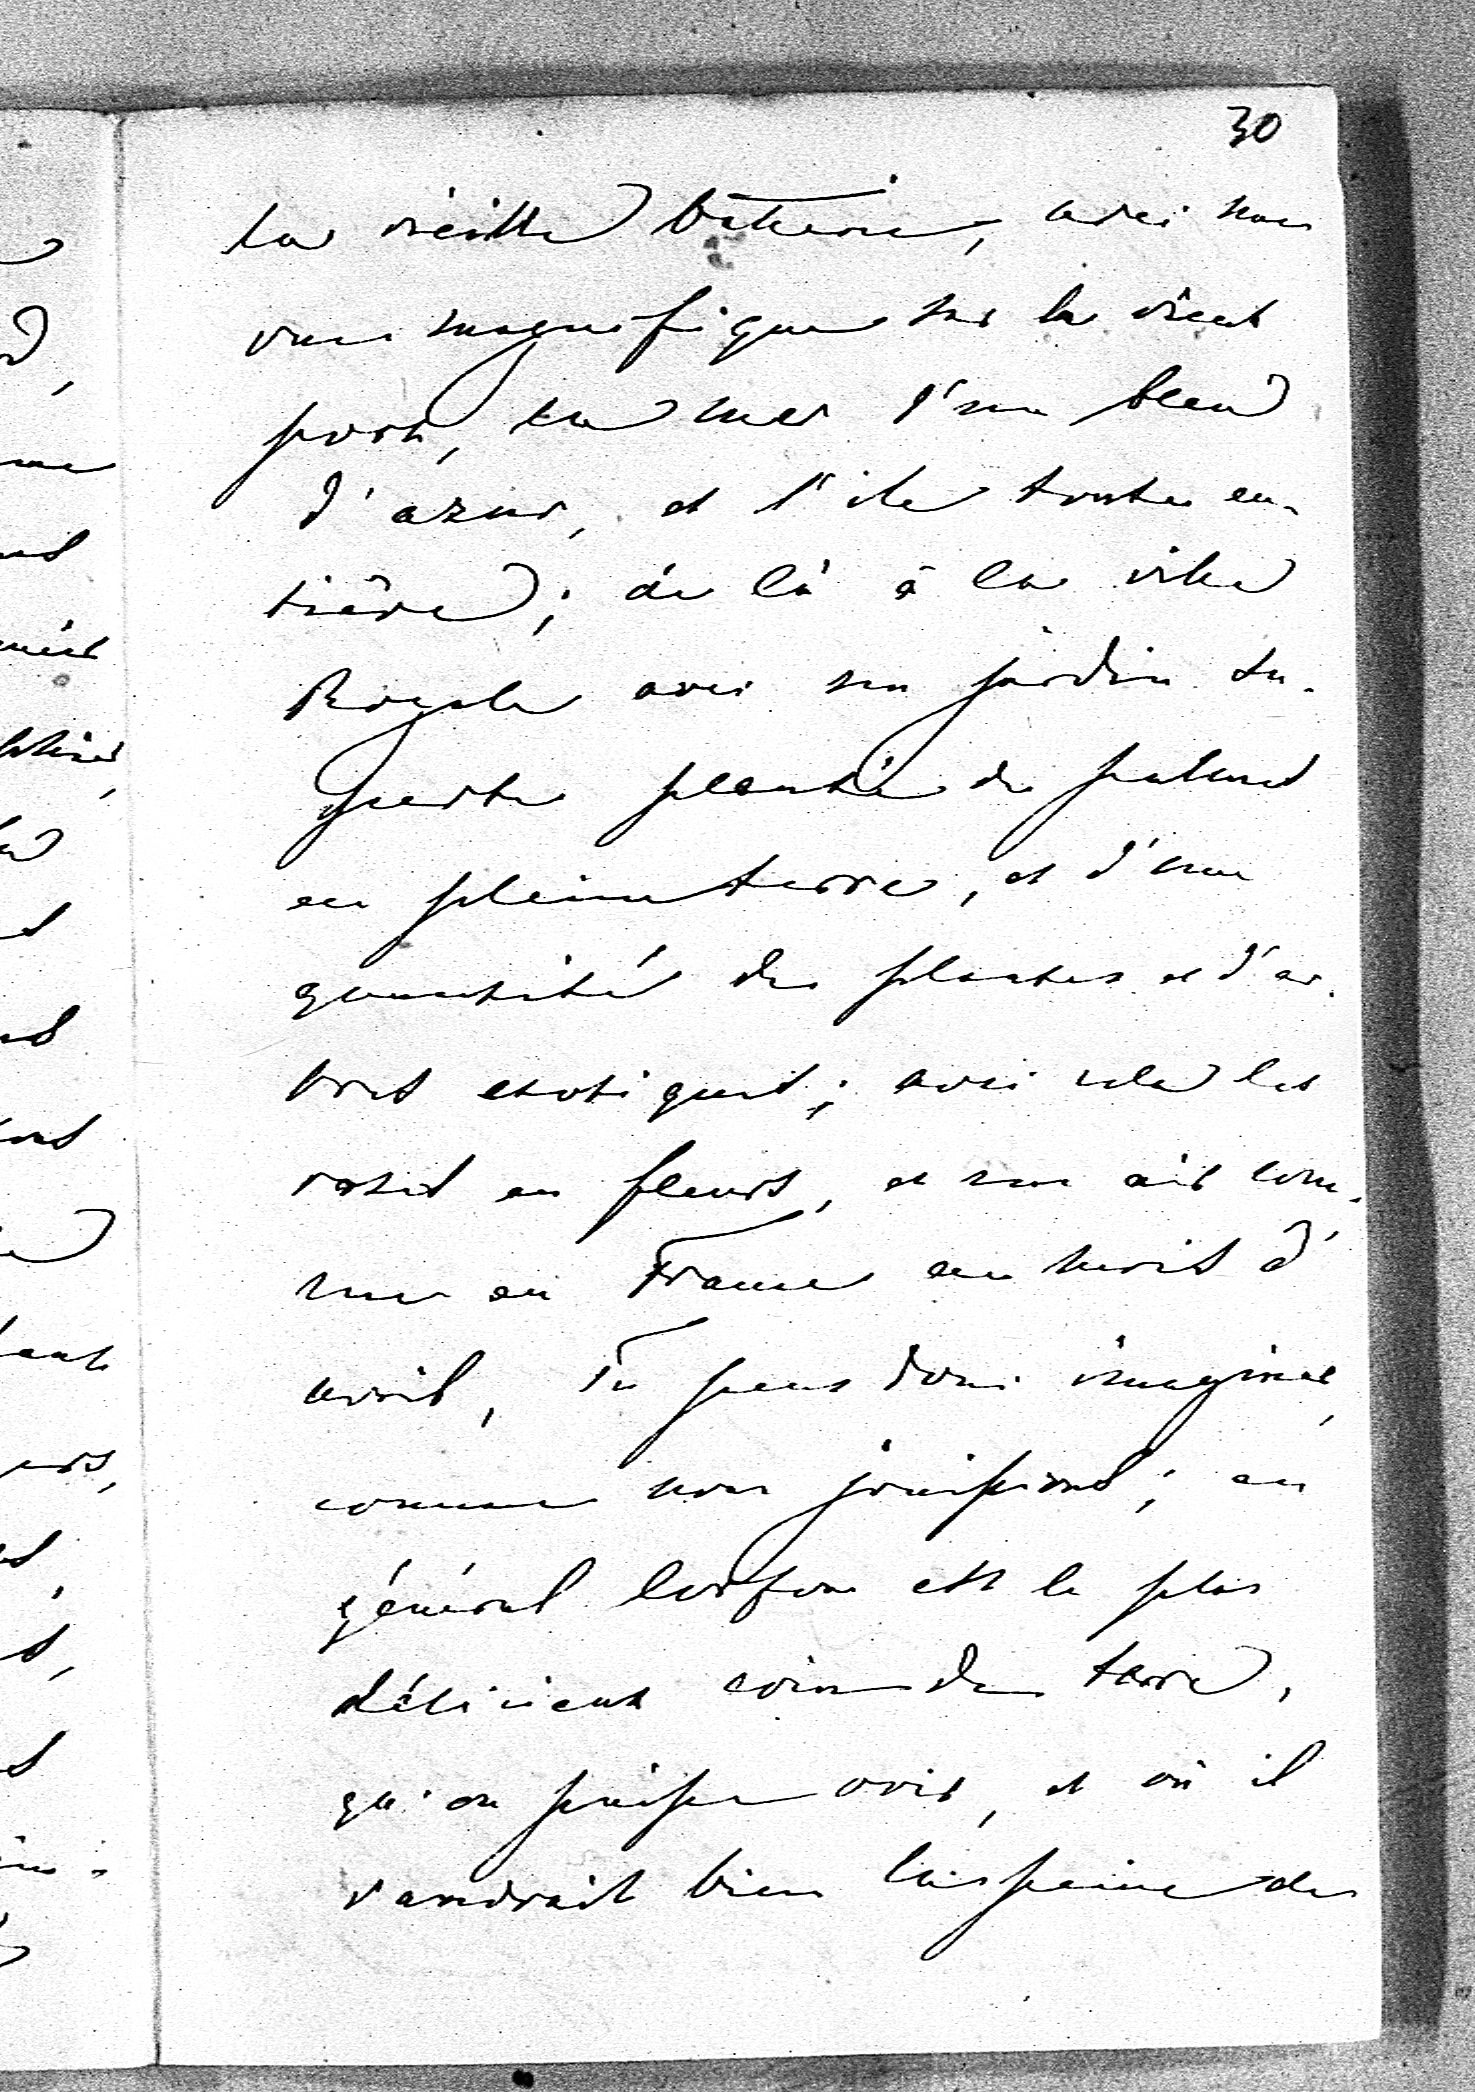 30
la vieille batterie, avec une
vue magnifique sur le vieux
port, la mer d'un bleu
d'azur, et l'ile toute en-
tière; de là à la villa
Royale avec son jardin su-
perbe planté de palmes
en pleine terre, et d'une
quantité de plantes et d'ar-
bres exotiques; avec cela les
roses en fleurs, et un air com-
me en France au mois d'
avril, Tu peux donc imaginer,
comme nous jouissons; en
général Corfou est le plus
délicieux coin de terre,
qu'on puisse voir, et où il
vaudrait bien la peine de